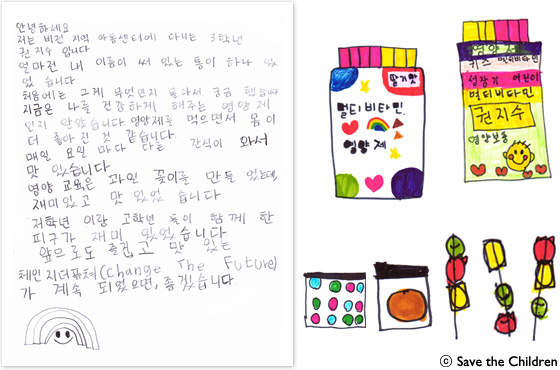 안녕하세요
저는 비전 지역 아동센터에 다니는 3학년
권지수 입니다
얼마전 내 이름이 써 있는 통이 하나 있
었 습니다
처음에는 그게 무엇인지 몰라서 궁금 했습니다
지금은 나를 건강하게 해주는 영양제
인지 알았습니다 영양제를 먹으면서 몸이
더 좋아진 것 같습니다.
매일 요일 마다 다른 간식이 와서
맛 있습니다
영양 교육은 과일 꽂이를 만들 었는데,
재미있고 맛 있었 습니다
저학년 이랑 고학년 들이 함께 한
피구가 재미 있었습니다
앞으로도 즐겁고 맛 있는
체인지더퓨처(Change The Future)
가 계속 되었으면, 좋겠습니다
딸기맛
멀티비타민.
영양제
영양제
키즈 멀티비타민
성장기 어린이
멀티비타민
권지수
영양보충
ⓒ Save the Children